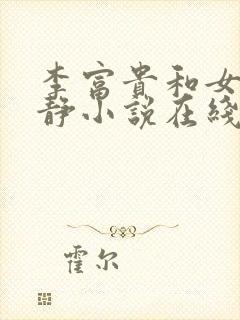 李富貴和女
靜小說在綫
霍尔